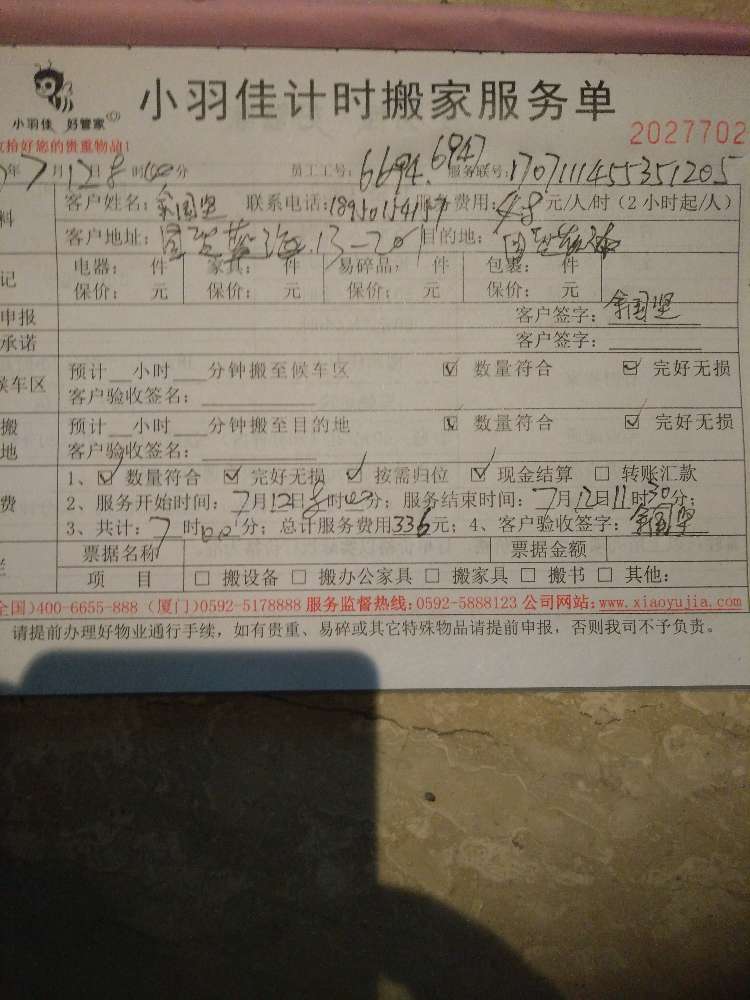 小羽佳计时搬家服务单
小羽佳 好管家
2027702
收拾好您的贵重物品!
年7月12日8时00分 员工工号:6694.6947 服务联号:1707111455351205
料 客户姓名:余国坚 联系电话: 服务费用:48元/人/时(2小时起/人)
客户地址: 13-201目的地:
记 电器: 件 家具: 件 易碎品: 件 包裹: 件
保价: 元 保价: 元 保价: 元 保价: 元
申报 客户签字:余国坚
承诺 客户签字:
候车区 预计__小时___分钟搬至候车区 ☑ 数量符合 ☑ 完好无损
客户验收签名:
搬 预计__小时___分钟搬至目的地 ☑ 数量符合 ☑ 完好无损
地 客户验收签名:
1、☑ 数量符合 ☑ 完好无损 ☑ 按需归位 ☑ 现金结算 □ 转账汇款
费 2、服务开始时间:7月12日8时00分;服务结束时间:7月12日11时30分;
3、共计:7时00分;总计服务费用336元;4、客户验收签字:余国坚
票据名称 票据金额
项 目 □ 搬设备 □ 搬办公家具 □ 搬家具 □ 搬书 □ 其他:
全国)400-6655-888 (厦门)0592-5178888 服务监督热线:0592-5888123 公司网站:www.xiaoyujia.com
请提前办理好物业通行手续,如有贵重、易碎或其它特殊物品请提前申报,否则我司不予负责。